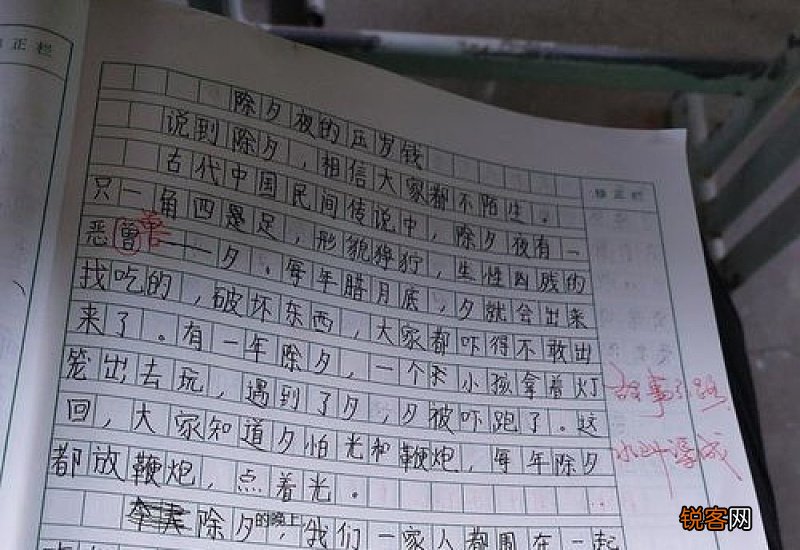 正栏
除夕夜的压岁钱
说到除夕，相信大家都不陌生。
古代中国民间传说中，除夕夜有一
只一角四足，形貌狰狞，生性凶残的
恶兽——夕。每年腊月底，夕就会出来
找吃的，破坏东西，大家都吓得不敢出
来了。有一年除夕，一个小孩拿着灯
笼出去玩，遇到了夕，夕被吓跑了。这
回，大家知道夕怕光和鞭炮，每年除夕
都放鞭炮，点着光。
除夕的晚上，我们一家人都围在一起
修正栏
故事引路
水到渠成
锐客网